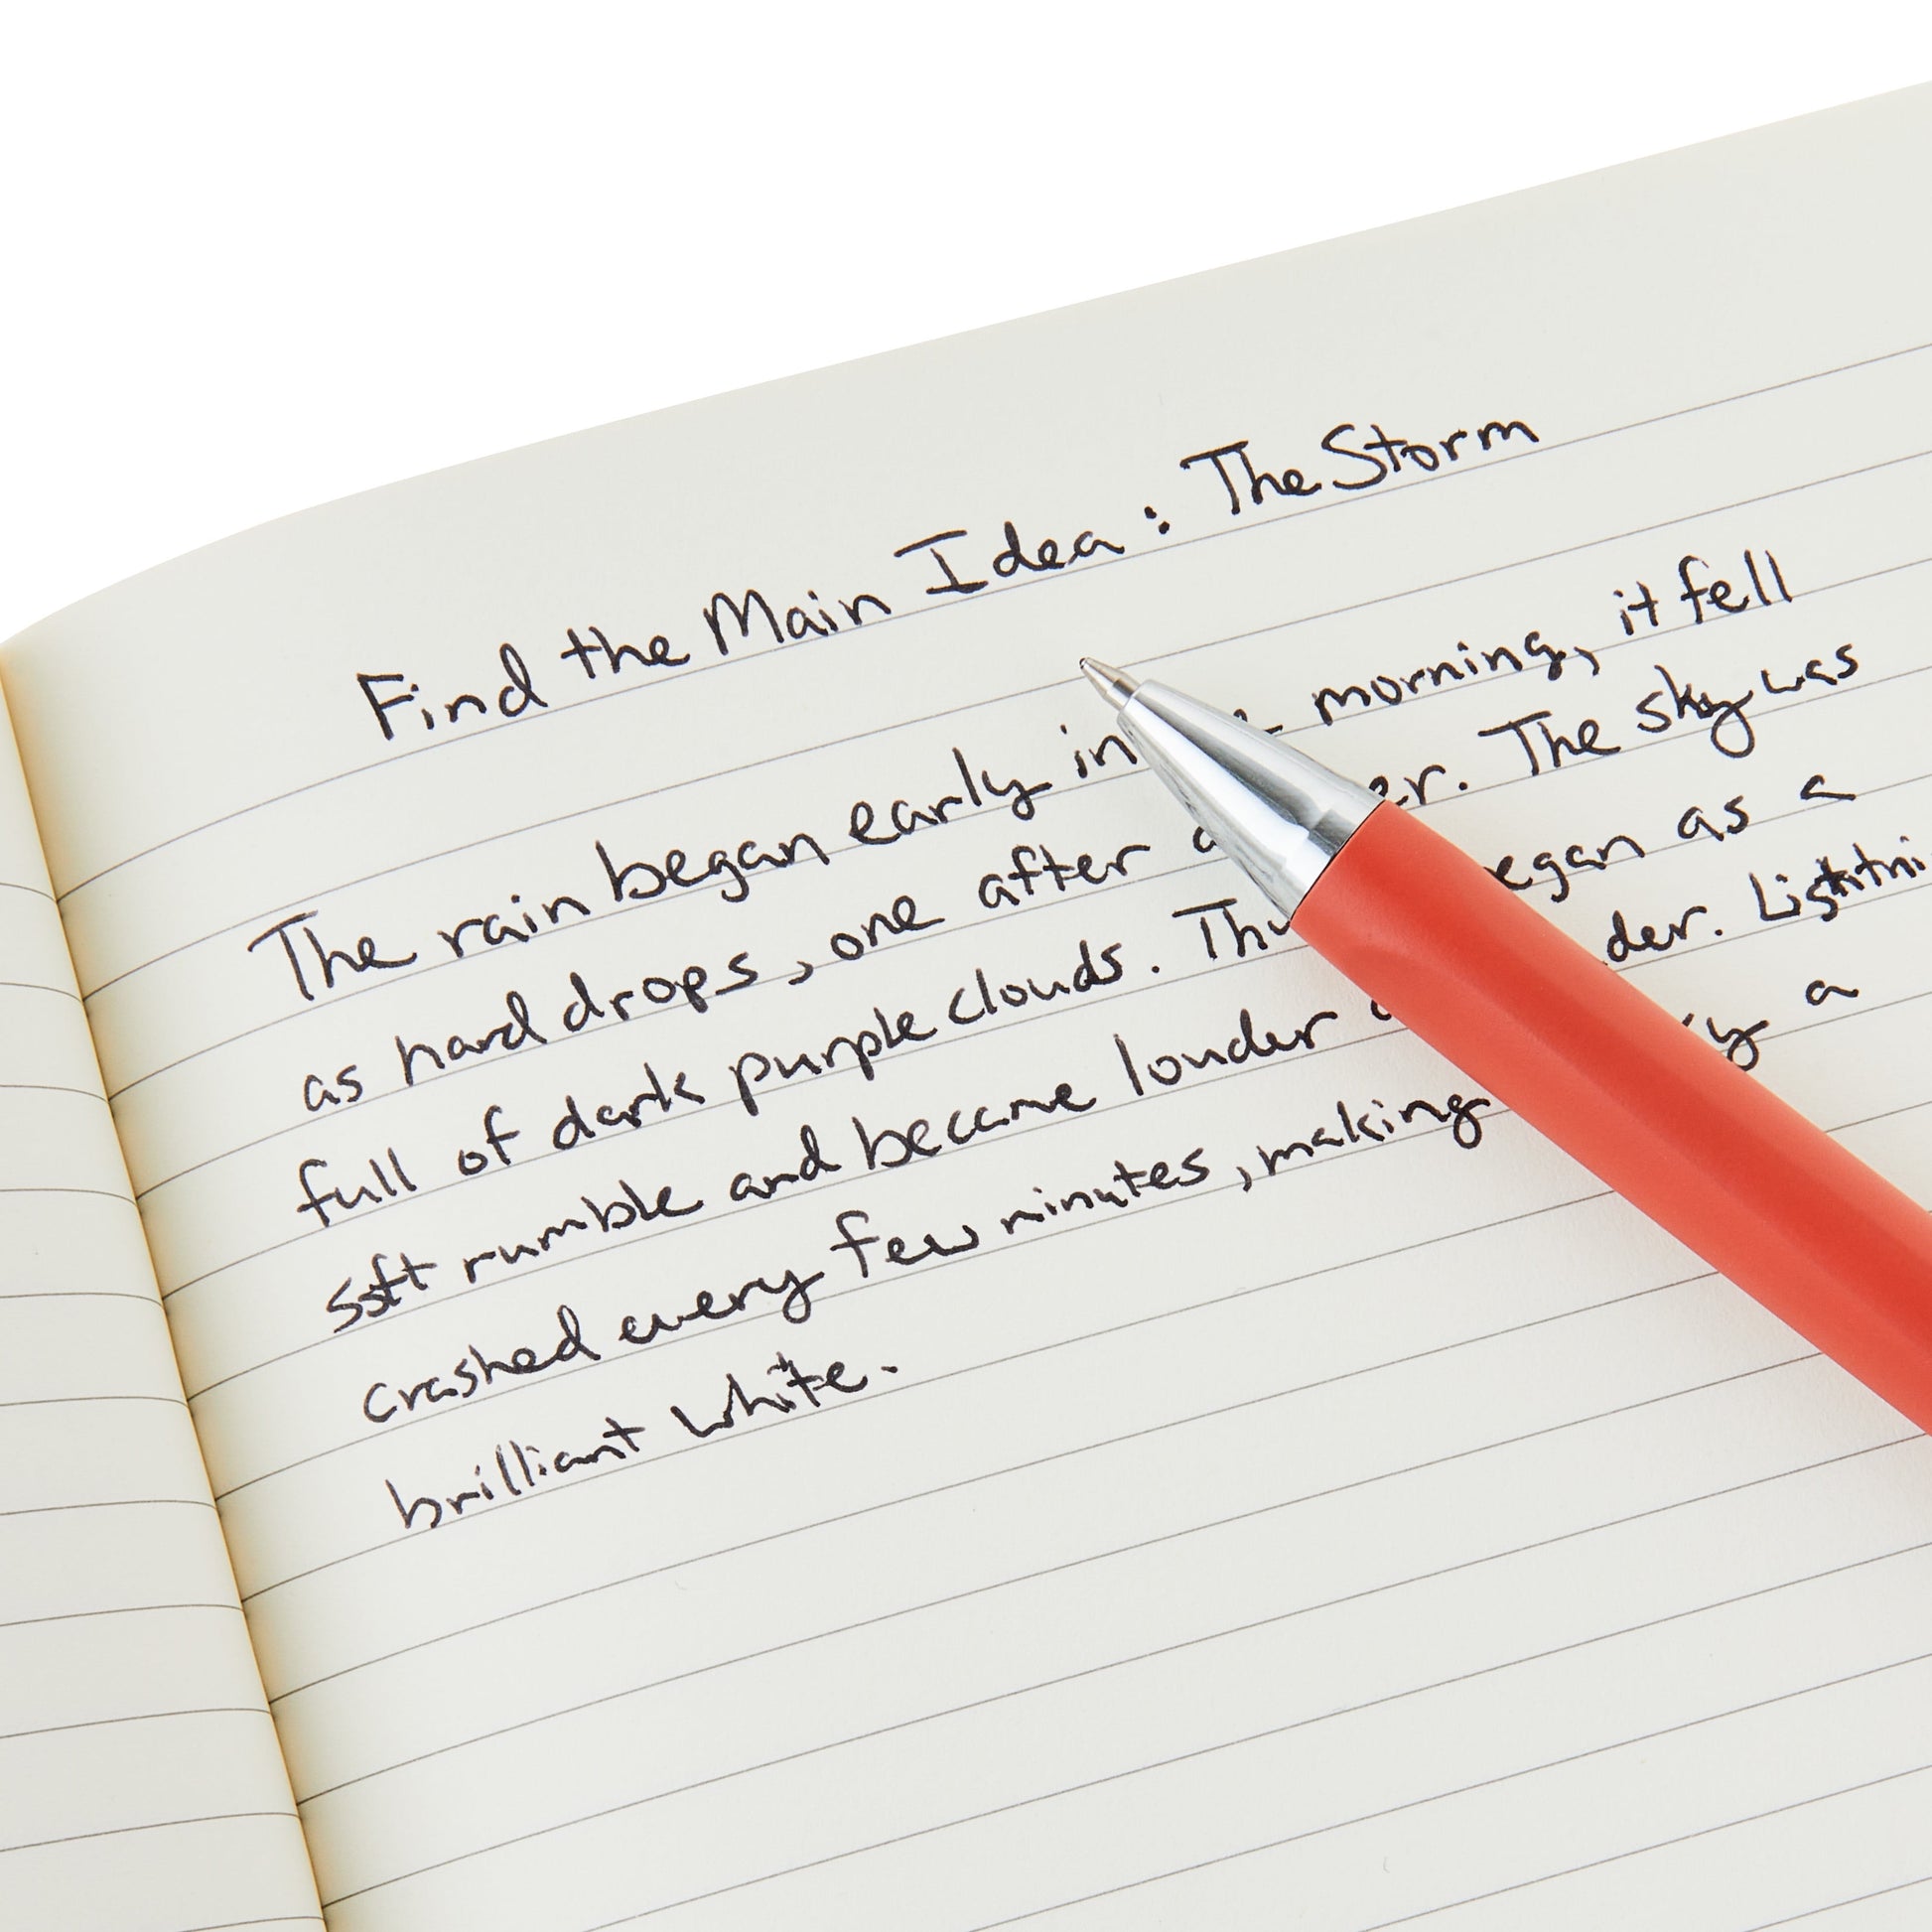 Find the Main Idea : The Storm
The rain began early in morning, it fell
as hard drops, one after The sky was
full of dark purple clouds. as a
soft rumble and became louder
crashed every few minutes, making a
brilliant white.